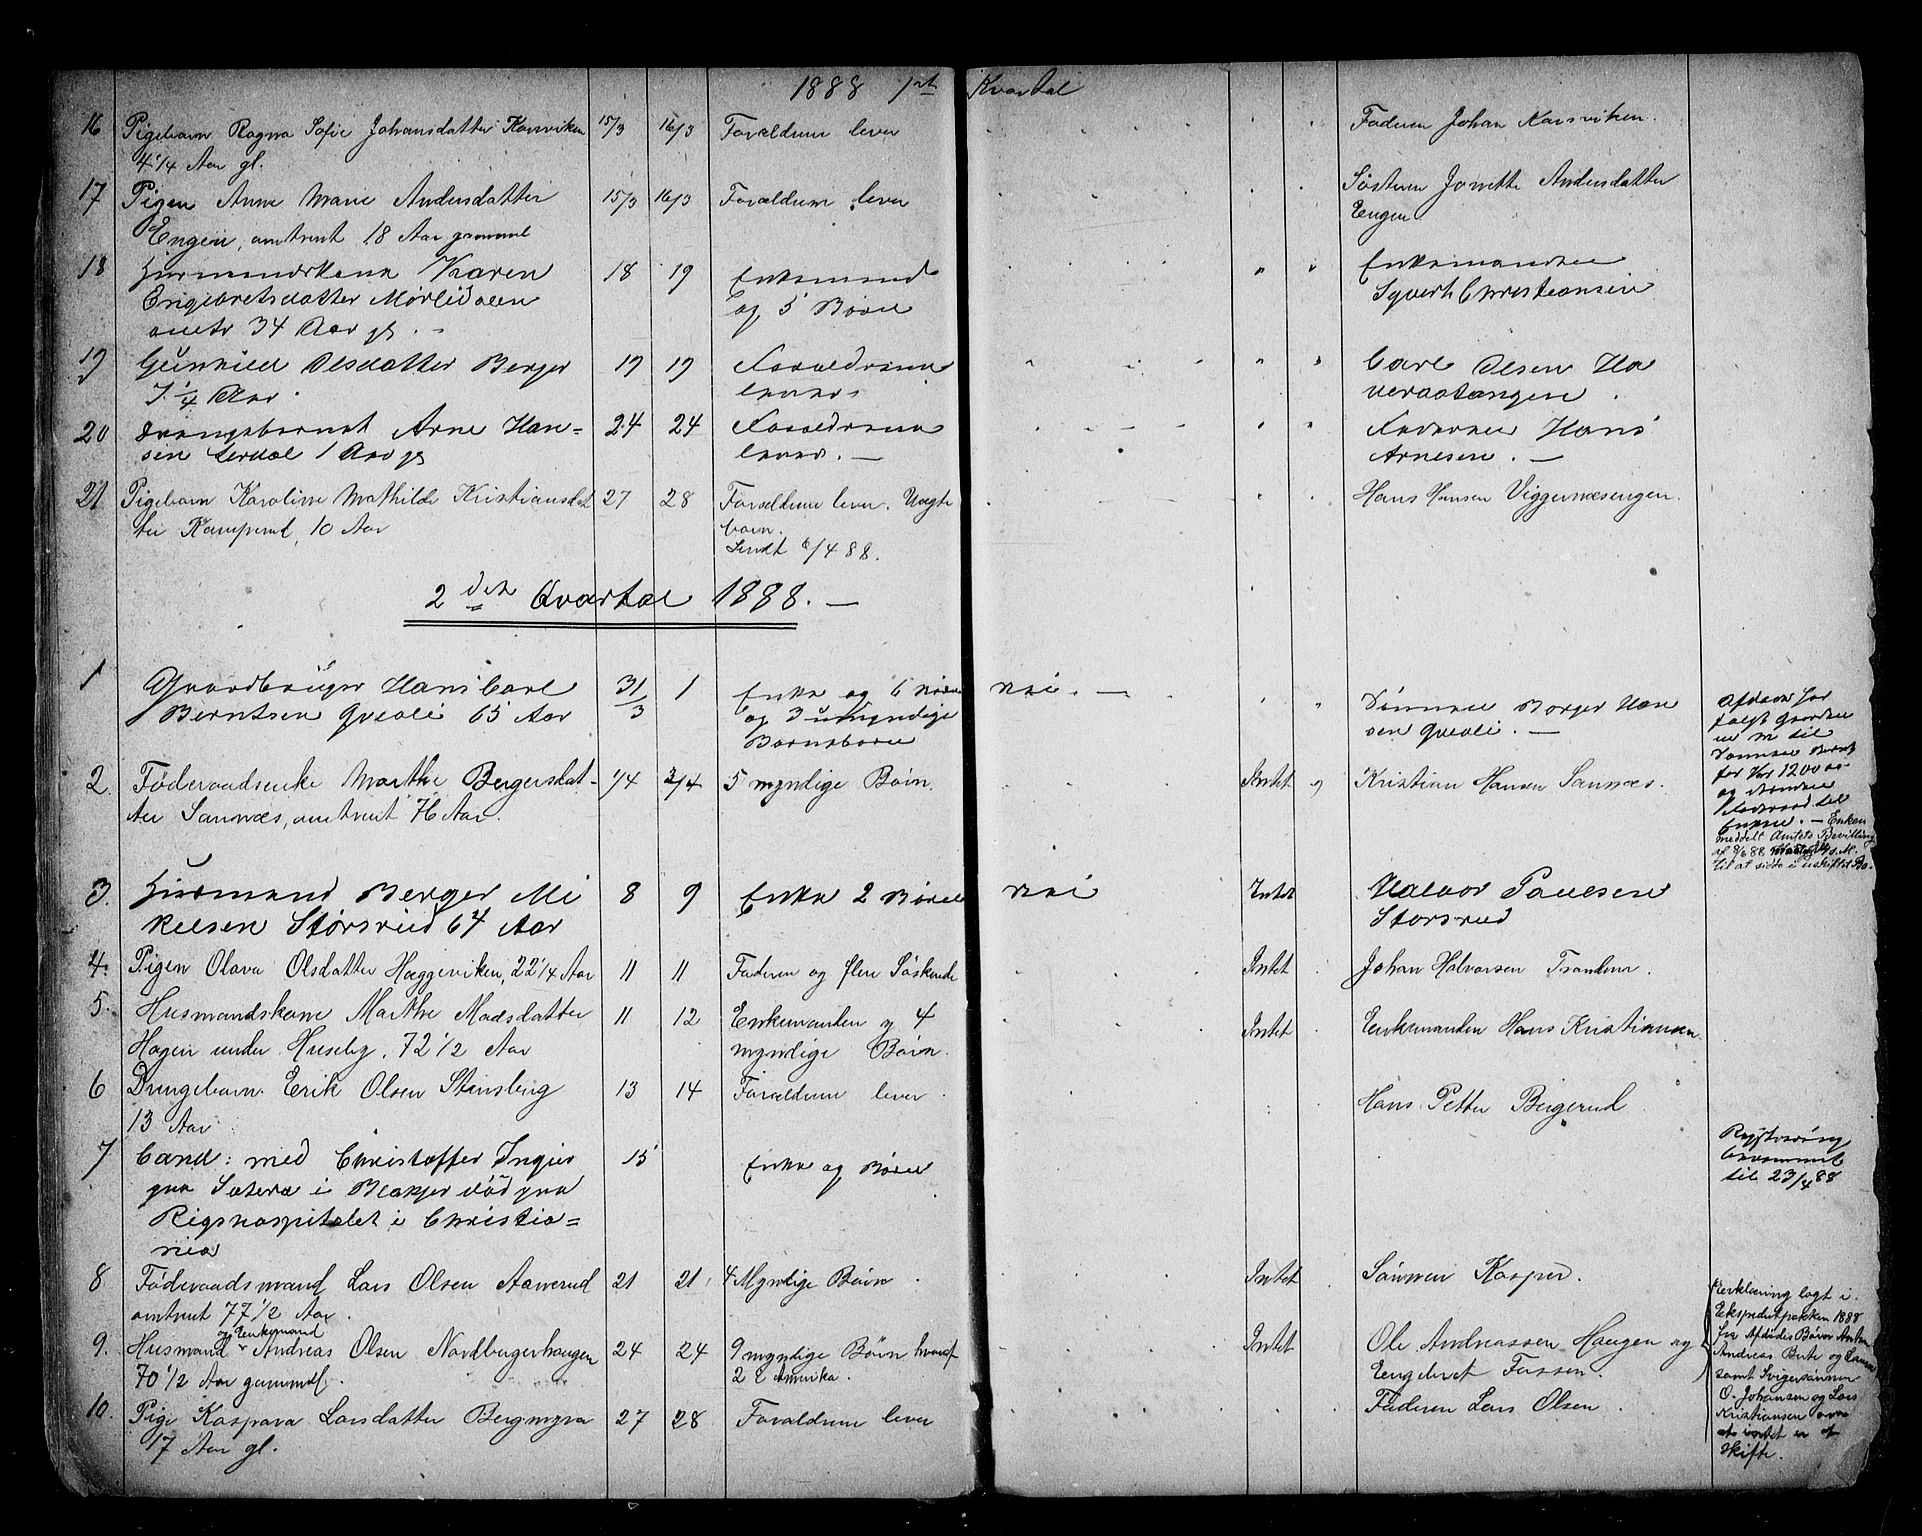 1888 1st Kvartal
16 Pigebarn Ragna Sofie Johansdatter Korsviken 15/3 16/3 Forældrene lever Faderen Johan Korsviken.
4 1/4 Aar gl.
17 Pigen Anne Marie Andersdatter 15/3 16/3 Forældrene lever Søsteren Jonette Andersdatter
Engen, omtrent 18 Aar gammel Engen
18 Husmandskone Karen 18 19 Enkemand " " Enkemanden
Engebretsdatter Mørlidalen og 5 Børn Syvert Christiansen
omtr 34 Aar gl.
19 Gunhild Olsdatter Berger 19 19 Forældrene " " Carl Olsen Ha
7 1/4 Aar. lever veraatangen.
20 Drengebarnet Arne Han= 24 24 Forældrene " " Faderen Hans
sen Lerdal 1 Aar gl lever. — Arnesen. —
21 Pigebarn Karoline Mathilde Kristiansdat 27 28 Forældrene lever. Uægte Hans Hansen Viggernæsengen.
ter Ramperud, 10 Aar barn.
Sendt 6/4 88.
2den Kvartal 1888. —
1 Gaardbruger Hans Carl 31/3 1 Enke og 6 Børn nei. — " " Sønnen Borger Han
Berntsen Qveoli 65 Aar og 3 umyndige sen Qveoli. —
Børnebørn
Afdøde har
solgt Gaarden
sin til
Sønnen Bernt
for Kr 1200
og
Føderaad til
Enken. — Enken
meddelt Amtets Bevilling
af 9/6 88
til at sidde i uskiftet Bo.
2. Føderaadsenke Marthe Bergersdat- 1/4 3/4 5 myndige Børn. Intet " Kristian Hansen Sannæs.
ter Sannæs, omtrent 76 Aar.
3. Husmand Berger Mi 8 9 Enke 2 Børn nei Intet Halvor Paulsen
kelsen Storsrud 64 Aar Storsrud
4. Pigen Olava Olsdatter Haggeviken, 22 1/4 Aar 11 11 Faderen og flere Søskende Intet Johan Halvorsen Tranderen.
5. Husmandskone Marthe Madsdatter 11 12 Enkemanden og 4 Intet Enkemanden Hans Kristiansen.
Hagen under Huseby. 72 1/2 Aar myndige Børn.
6 Drengebarn Erik Olsen Stensberg 13 14 Forældrene lever. Hans Petter Bergerud
13 Aar
7 Cand: med Christoffer Ingier 15 Enke og Børn
paa Sætera i Blakjer død paa
Rigshospitalet i Christia=
nia
Registrering
berammet
til 23/4 88
8 Føderaadsmand Lars Olsen Aamerud 21 21 4 Myndige Børn. Intet Sønnen Kasper.
omtrent 77 1/2 Aar.
og Enkemand
9. Husmand Andreas Olsen Nordbergerhaugen 24 24 9 myndige Børn hvoraf Intet Ole Andreassen Haugen og
70 1/2 Aar gammel. 2 i Amerika. Engebret Fossen.
10. Pige Kaspara Larsdatter Bergmyra 27 28 Forældrene lever Faderen Lars Olsen.
17 Aar gl.
Erklæring lagt i
Ekspeditpakken 1888
fra Afdødes Børn Anton
Andreas Berte og
samt Svigersønnen
O. Johansen og Lars
Kristiansen om
at intet er at
skifte.